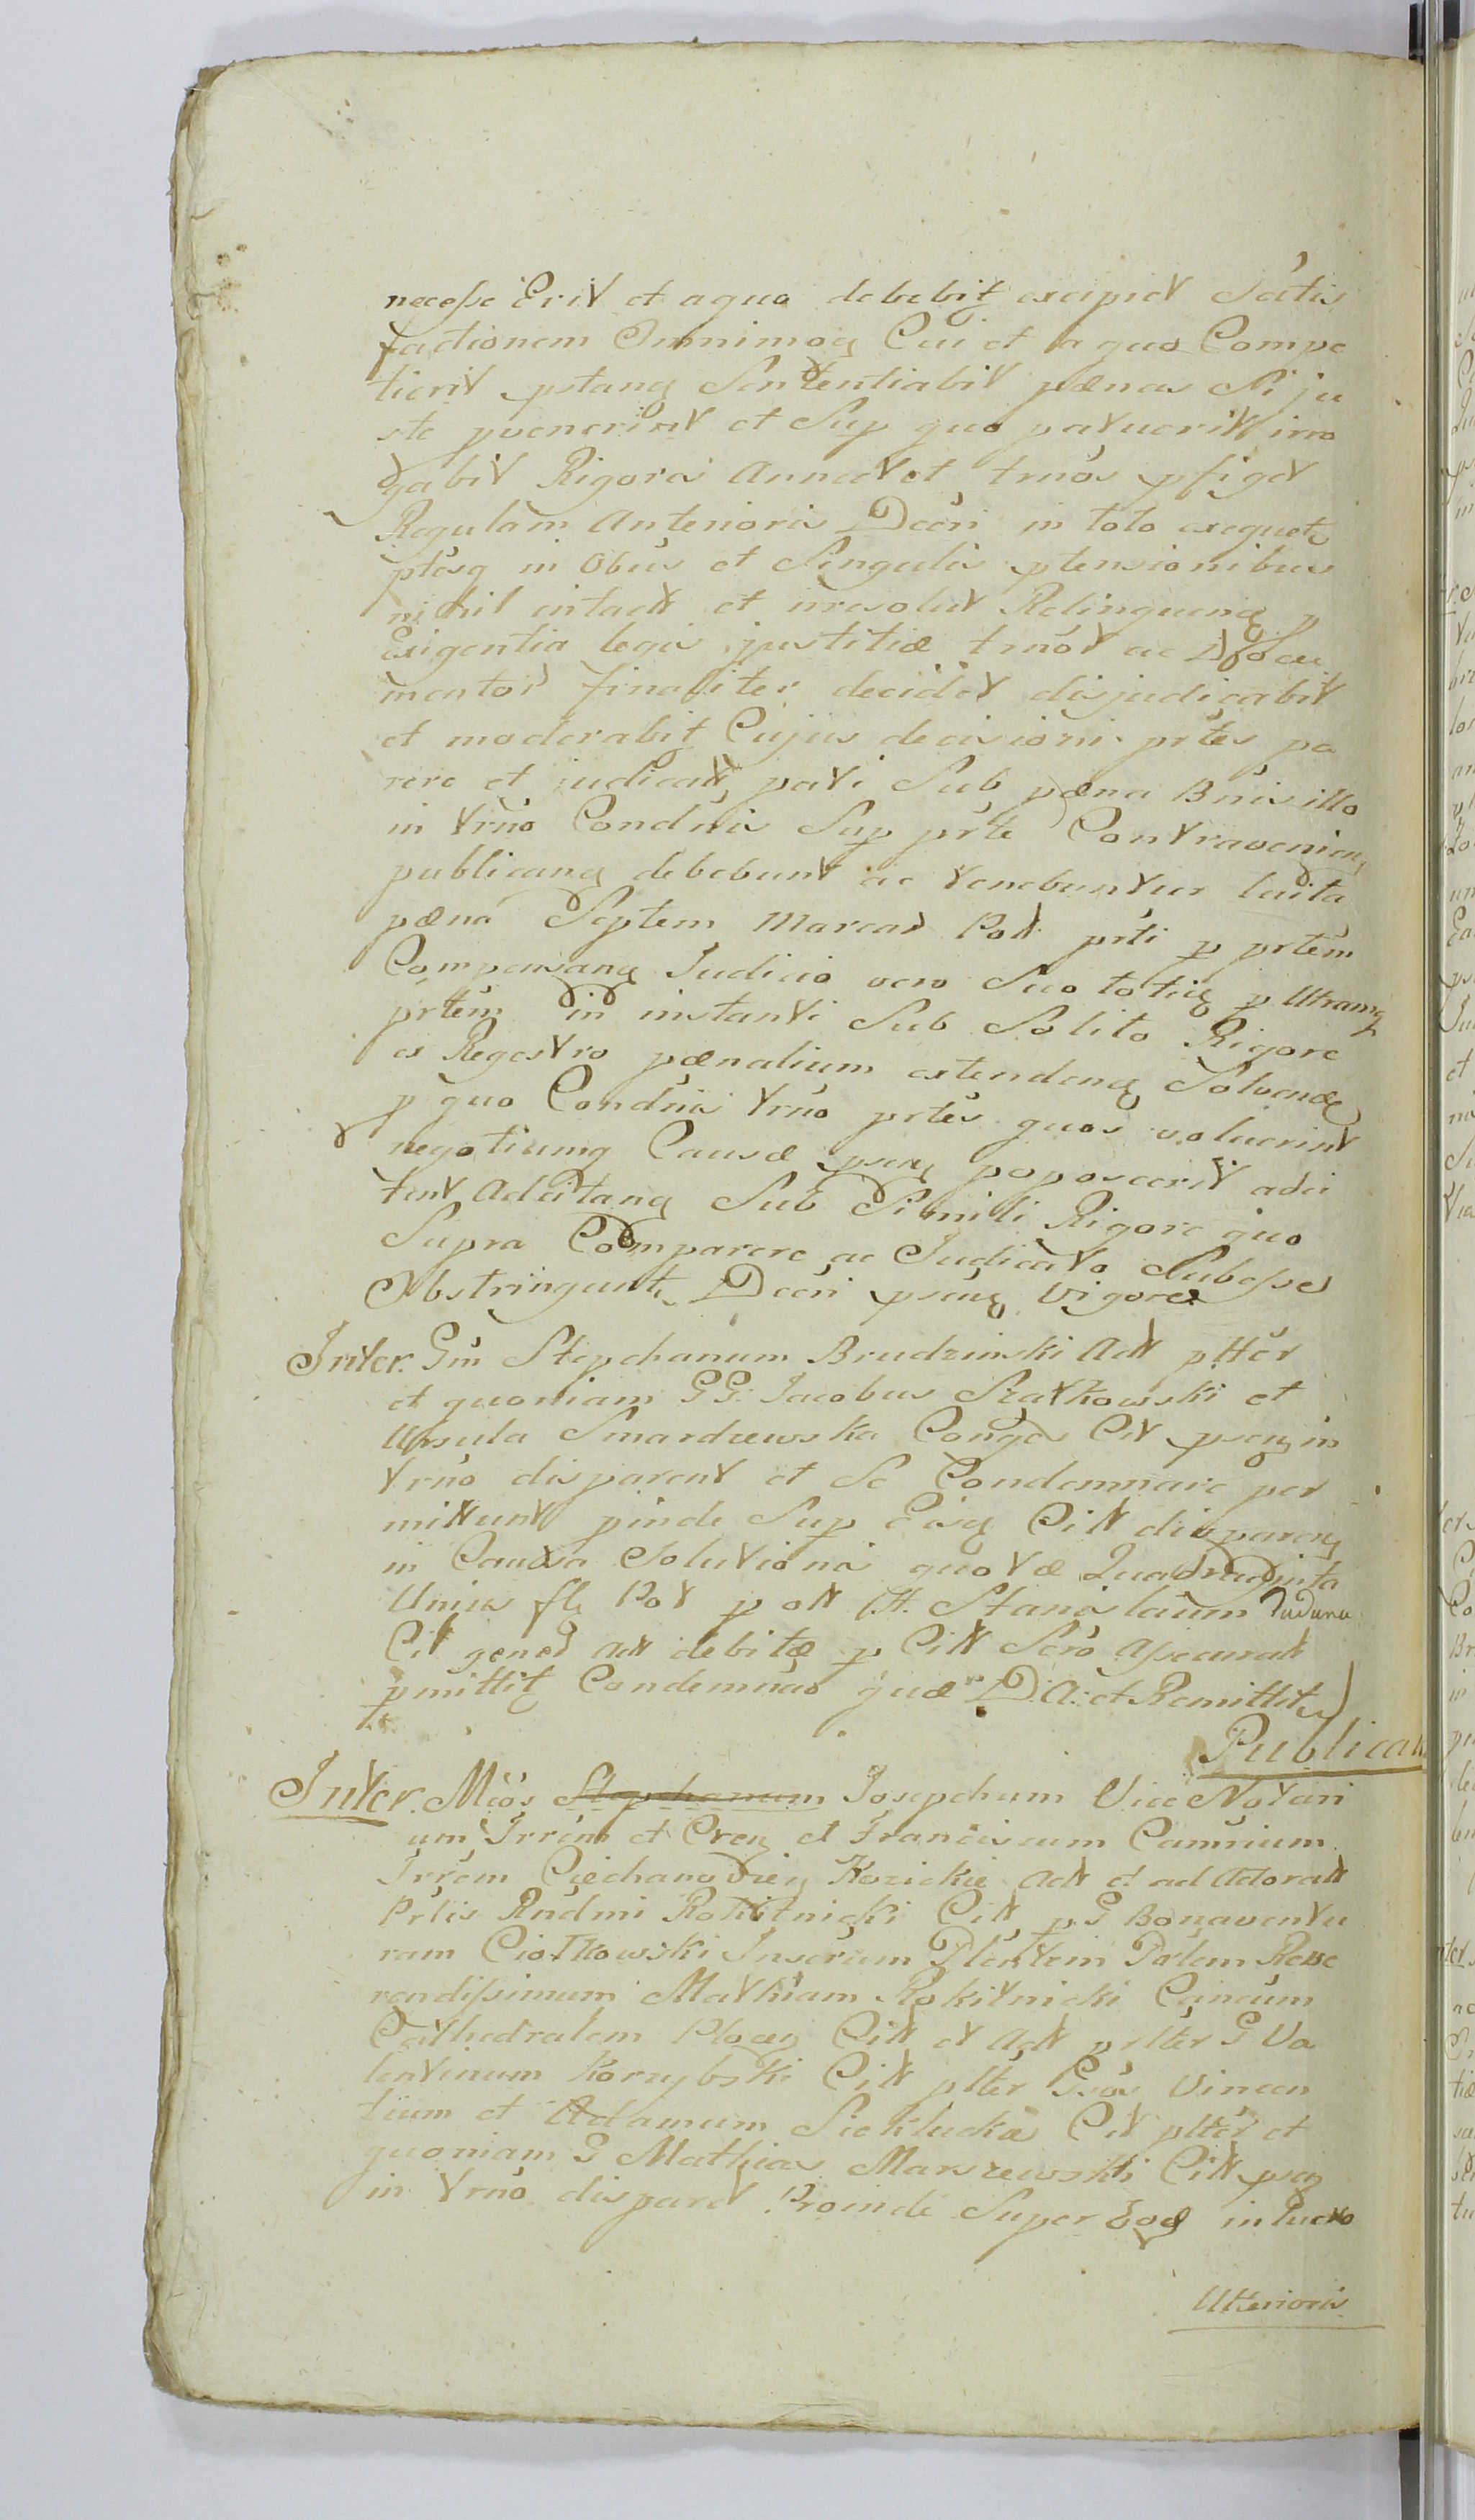 necesse Erit et a quo debebit excipiet Satis
factionem Omnimoq Cui et a quo Compe
tierit pstanq Sententiabit pænas Si ju
ste pvenerint et Sup quo patuerit irro
gabit Rigores annectet trnos pfiget
Regulam Anterioris Decri in toto exequet
ptesq in Obus et Singulis ptensionibus
nihil intact et irresolut Relinquenq p
Exigentia legis justitiæ trnor ac Docu
mentor finaliter decidet disjudicabit
et moderabit Cujus decisioni prtes pa
rere et judicat pati Sub pæna Bnis illo
in trno Condnis Sup prte Contravenienq
publicanq debebunt ac tenebuntur luita
pæna Septem Marcar Pol prti p prtem
Compensanq Judicio vero Suo totiq p Utramq
prtem in instanti Sub Solito Rigore
ex Regestro pænalium extendenq Solvenda
p quo Condnis trno prtes quos voluerint
negotiumq Causæ psenq poposcerit adci
tent Adcitanq Sub Simili Rigore quo
Supra Comparere ac Judicato Subesse
Obstringunt Decri psenq vigore
Inter. Gm Stephanum Brudzinski Act plter
et quoniam GG. Jacobus Szatkowski et
Ursula Smardzewska Conges Cit psenq in
trno disparent et Se Condemnare per
mittunt pinde Sup Eisq Citt disparenq
in Causa Solutionis quotæ Quadraginta
Unius fl Pol p olt Stanislaum
Cit gener Act debitæ p Citt Sero Assecurat
pmittit Condemnao quæ D. A. et Remittit
Publicat
Inter. Mcos Stephanum Josephum Vice Notari
um Trrem et Cren et Franciscum Camrium
Trrem Ciechanovien Kozickie Act et ad Actorat
Prlis Rndmi Rokitnicki Citt p G Bonaventu
ram Ciotkowski Juserum Plentem Palem Reve
rendissimum Mathiam Rokitnicki Cancum
Cathedralem Plocen Citt et Act prlter G Va
lentinum Korzybski Citt plter Gsos Vincen
tium et Adamum Sieklucka Cit plter et
quoniam G Mathias Marszewski Citt psen
in trno disparet Proinde Super Eod in lucro
Ulterioris